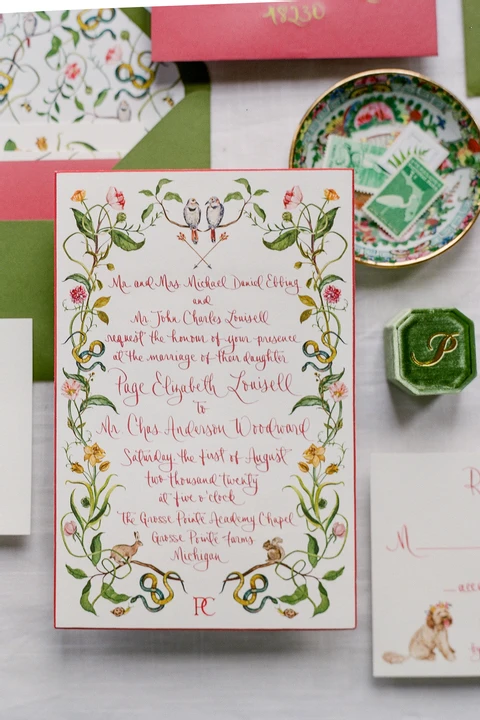 18230
Mr. and Mrs. Michael Daniel Ebbing
and
Mr John Charles Louisell
request the honour of your presence
at the marriage of their daughter
Page Elizabeth Louisell
to
Mr Chas Anderson Woodward
Saturday, the first of August
two thousand twenty
at five o'clock
the Grosse Pointe Academy Chapel
Grosse Pointe Farms
Michigan
PC
P
R
M